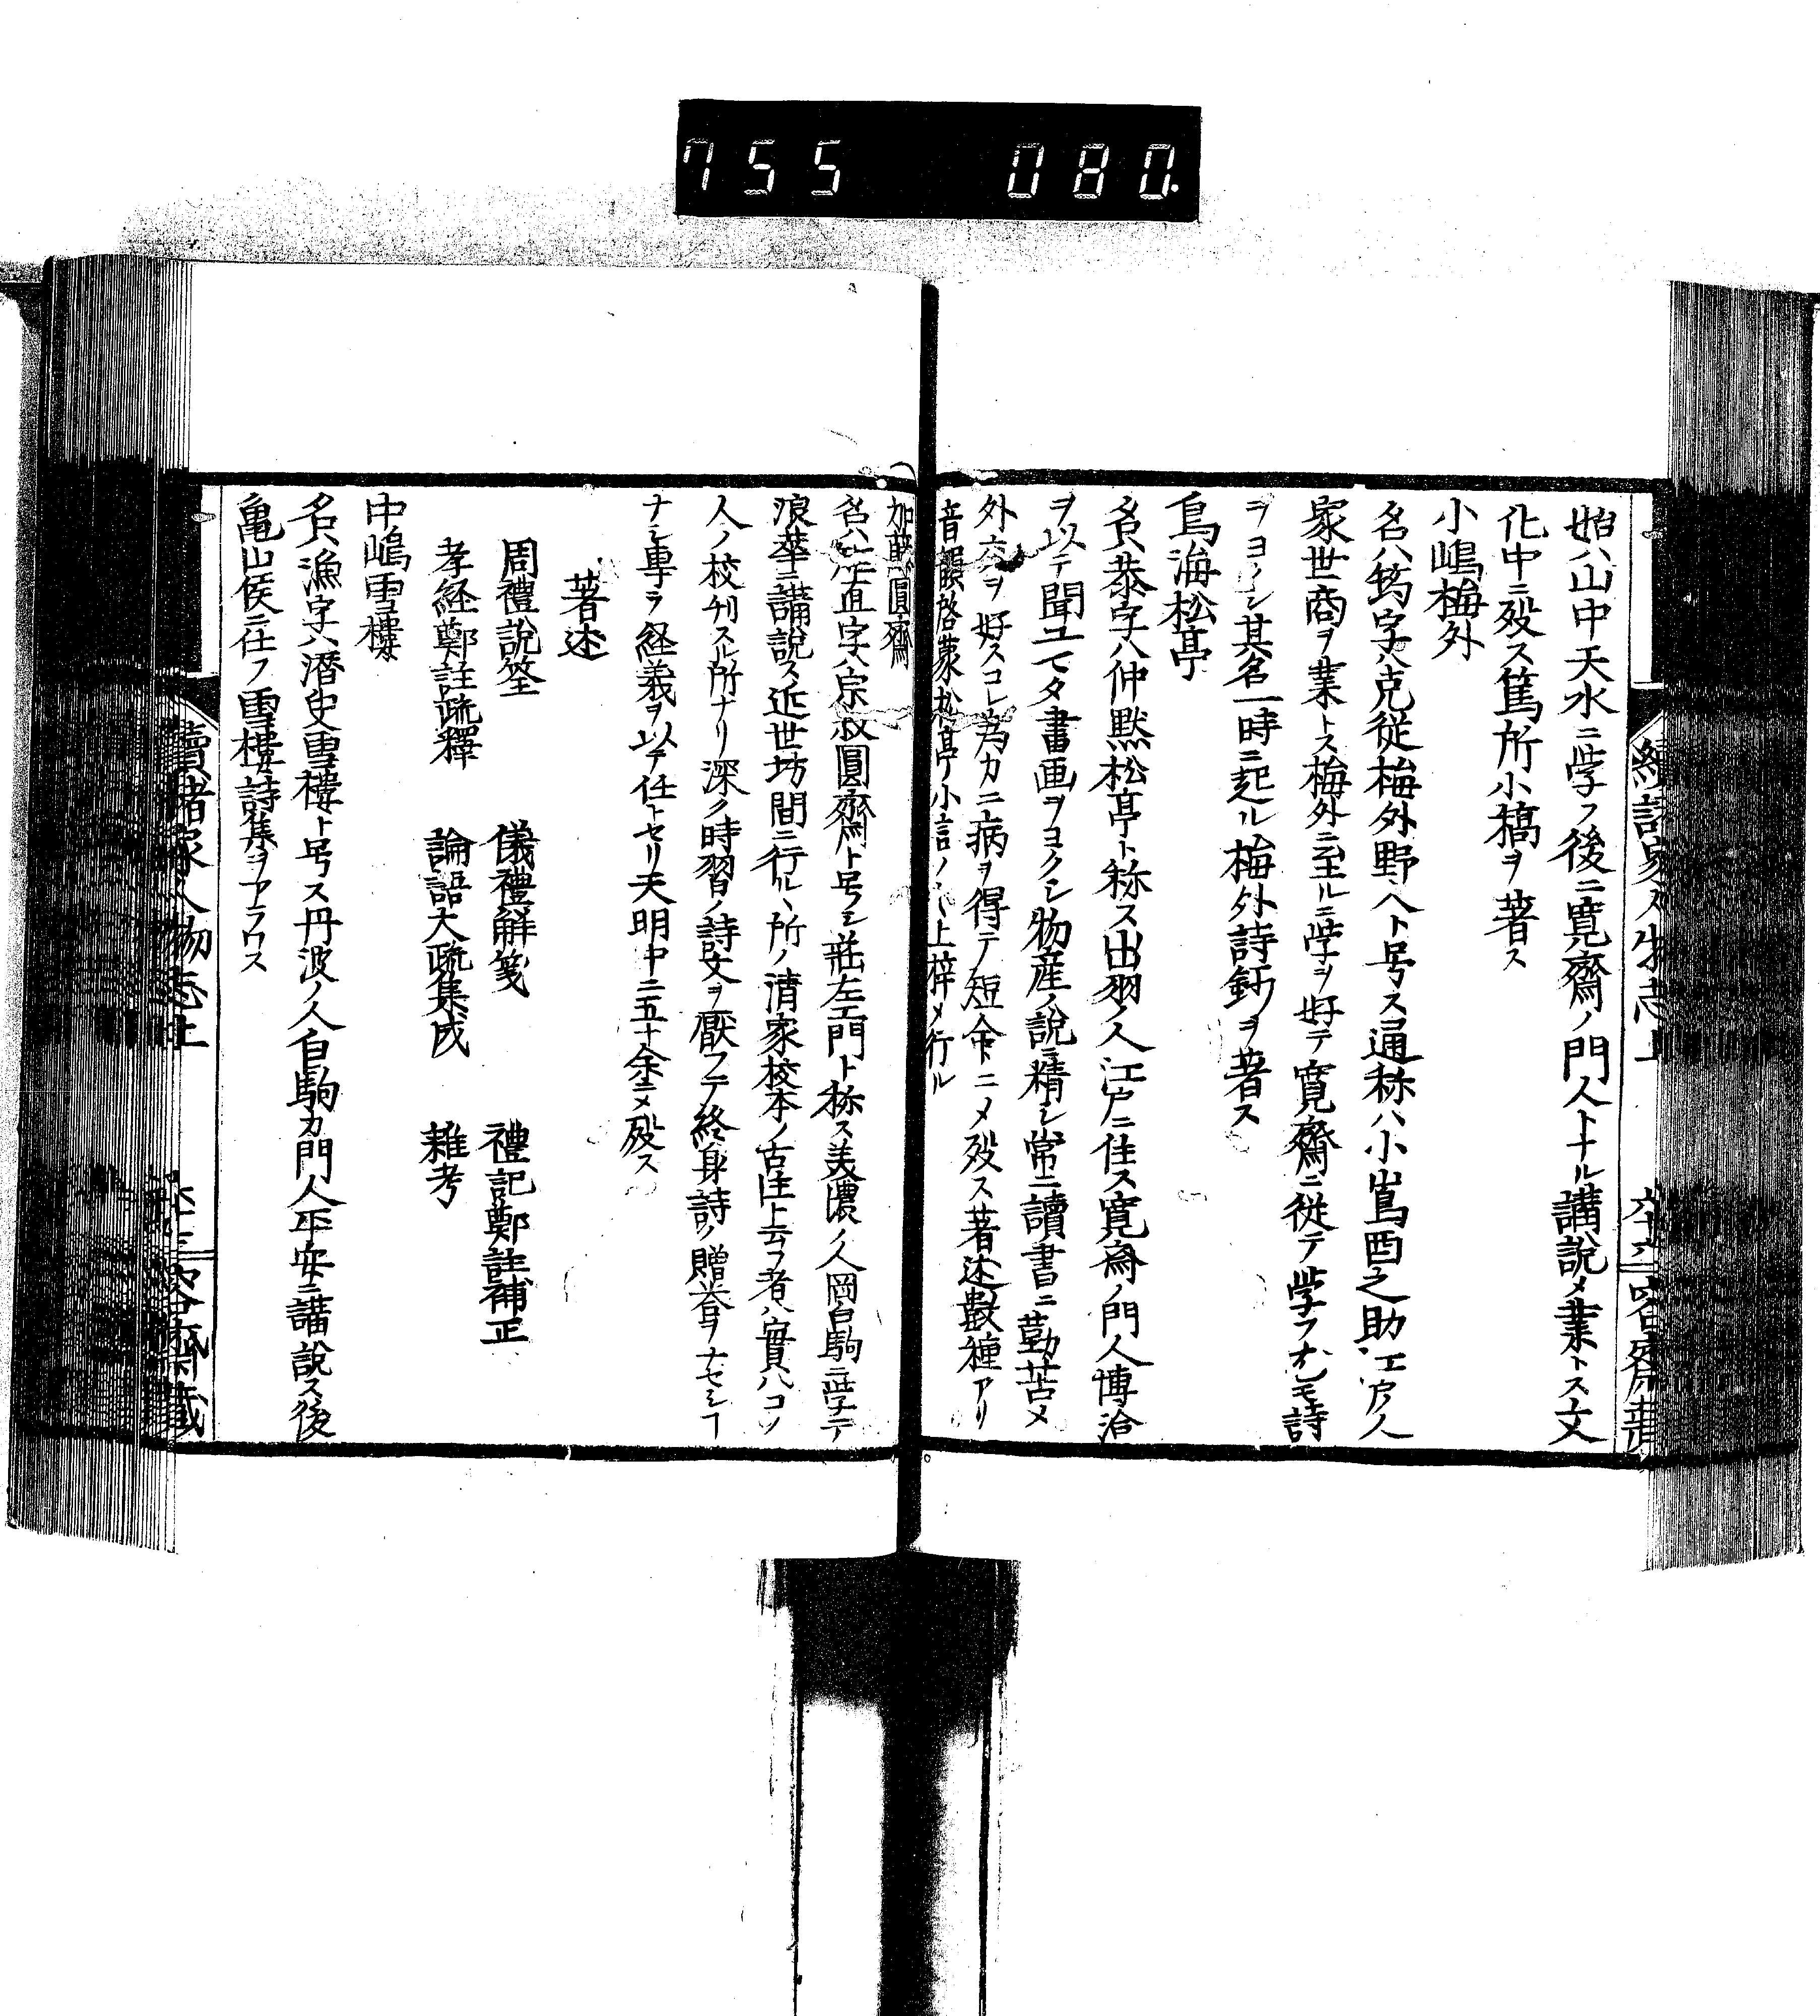 755 080.
始ハ山中天水ニ学フ後ニ寛齋ノ門人トナル講説〆業トス文
化中ニ歿ス篤所小稿ヲ著ス
小嶋梅外
名ハ筠字ハ克従梅外野人ト号ス通称ハ小嶌酉之助江戸ノ人
家世商ヲ業トス梅外ニ至ルニ学ヲ好テ寛齋ニ従テ学フ尤モ詩
ヲヨクシ其名一時ニ起ル梅外詩鈔ヲ著ス
鳥海松亭
名ハ恭字ハ仲黙松亭ト称ス出羽ノ人江戸ニ住ス寛齋ノ門人博洽
ヲ以テ聞エマタ書画ヲヨクシ物産ノ説ニ精シ常ニ讀書ニ勤苦〆
外交ヲ好スコレ為カニ病ヲ得テ短命ニ〆歿ス著述數種アリ
音韻啓蒙松亭小言ノミ上梓〆行ル
加藤圓齋
名ハ正直字ハ宗叔圓齋ト号シ莊左エ門ト称ス美濃ノ人岡白駒ニ学テ
浪華ニ講説ス近世坊間ニ行ルヽ所ノ清家校本ノ古注ト云フ者ハ實ハコノ
人ノ校刊スル所ナリ深ク時習ノ詩文ヲ厭フテ終身詩ノ贈答ヲナセシヿ
ナシ專ラ経義ヲ以テ任トセリ天明中ニ五十余ニ〆歿ス
著述
周禮說筌 儀禮解箋 禮記鄭註補正
孝経鄭註疏釋 論語大疏集成 雜考
中嶋雪樓
名ハ漁字ハ潛史雪樓ト号ス丹波ノ人白駒カ門人平安ニ講説ス後
亀山侯ニ仕フ雪樓詩集ヲアラワス
續諸家人物志上